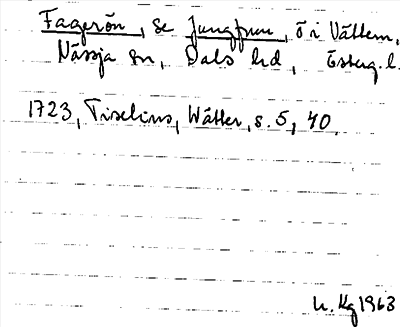 Fagerön, se Jungfrun, ö i Vättern,
Nässja sn, Dals hd, Österg. l.
1723, Tiselius, Wätter, s. 5, 40.
u. Kg 1963